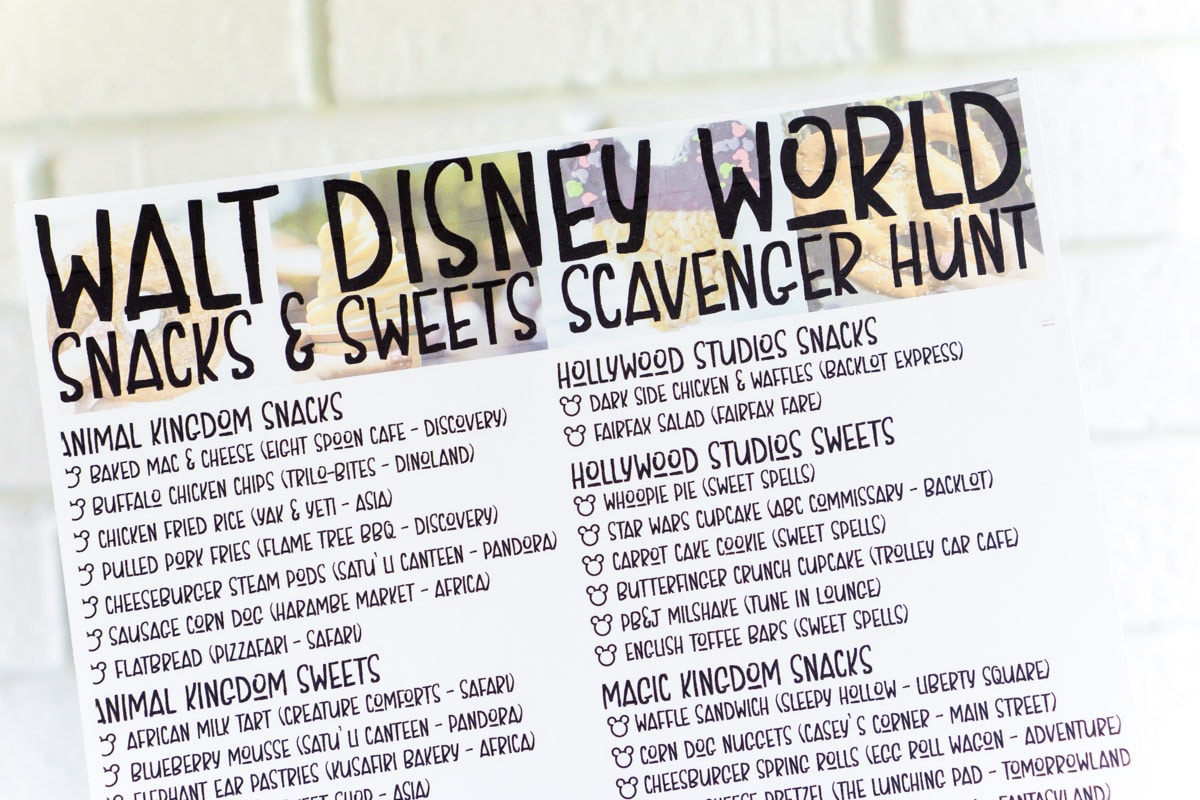 WALT DISNEY WORLD
SNACKS & SWEETS SCAVENGER HUNT
ANIMAL KINGDOM SNACKS
BAKED MAC & CHEESE (EIGHT SPOON CAFE - DISCOVERY)
BUFFALO CHICKEN CHIPS (TRILO-BITES - DINOLAND)
CHICKEN FRIED RICE (YAK & YETI - ASIA)
PULLED PORK FRIES (FLAME TREE BBQ - DISCOVERY)
CHEESEBURGER STEAM PODS (SATU'LI CANTEEN - PANDORA)
SAUSAGE CORN DOG (HARAMBE MARKET - AFRICA)
FLATBREAD (PIZZAFARI - SAFARI)
ANIMAL KINGDOM SWEETS
AFRICAN MILK TART (CREATURE COMFORTS - SAFARI)
BLUEBERRY MOUSSE (SATU'LI CANTEEN - PANDORA)
ELEPHANT EAR PASTRIES (KUSAFIRI BAKERY - AFRICA)
SHOP - ASIA)
HOLLYWOOD STUDIOS SNACKS
DARK SIDE CHICKEN & WAFFLES (BACKLOT EXPRESS)
FAIRFAX SALAD (FAIRFAX FARE)
HOLLYWOOD STUDIOS SWEETS
WHOOPIE PIE (SWEET SPELLS)
STAR WARS CUPCAKE (ABC COMMISSARY - BACKLOT)
CARROT CAKE COOKIE (SWEET SPELLS)
BUTTERFINGER CRUNCH CUPCAKE (TROLLEY CAR CAFE)
PB&J MILSHAKE (TUNE IN LOUNGE)
ENGLISH TOFFEE BARS (SWEET SPELLS)
MAGIC KINGDOM SNACKS
WAFFLE SANDWICH (SLEEPY HOLLOW - LIBERTY SQUARE)
CORN DOG NUGGETS (CASEY'S CORNER - MAIN STREET)
CHEESBURGER SPRING ROLLS (EGG ROLL WAGON - ADVENTURE)
CHEESE PRETZEL (THE LUNCHING PAD - TOMORROWLAND
FANTASYLAND)